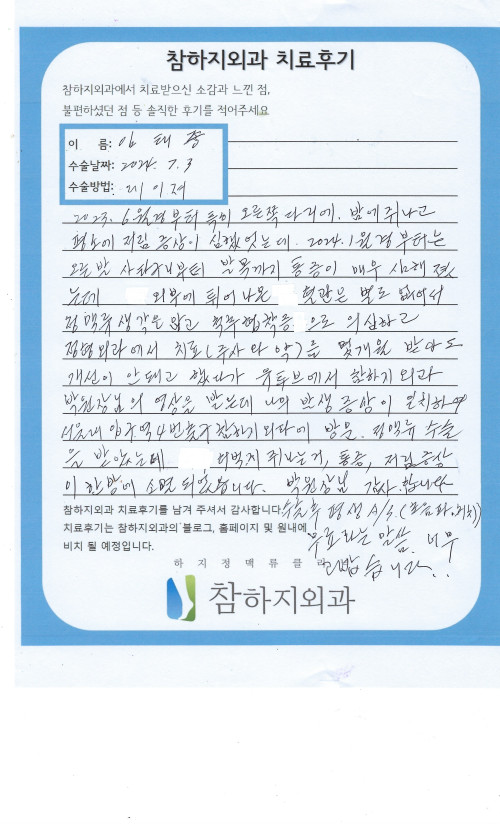 참하지외과 치료후기
참하지외과에서 치료받으신 소감과 느낀 점,
불편하셨던 점 등 솔직한 후기를 적어주세요
이 름: 임태
수술날짜: 2024. 7. 3
수술방법: 레이저
2023. 6월경부터 특히 오른쪽 다리에. 밤에 쥐나고
평소에 저림 증상이 심했었는데. 2024.1월경부터는
오른발 사타구니부터 발목까지 통증이 매우 심해졌
는데 외부에 튀어나온 혈관은 별로 없어서
정맥류 생각을 않고 척추협착증으로 의심하고
정형외과에서 치료(주사와 약)을 몇개월 받아도
개선이 안돼고 했다가 유튜브에서 참하지외과
박원장님의 영상을 봤는데 나의 발생증상이 일치하여
서울대입구역 4번출구 참하지외과에 방문. 정맥류 수술
을 받았는데 허벅지 쥐나는거, 통증, 저림증상
이 한방에 소멸되었습니다. 박원장님 감사합니다
참하지외과 치료후기를 남겨 주셔서 감사합니다.
치료후기는 참하지외과의 블로그, 홈페이지 및 원내에
비치 될 예정입니다.
수술후 평생 A/S (초음파.)
무료라는 말씀. 너무
고맙습니다..!
하 지 정 맥 류 클 리
참하지외과